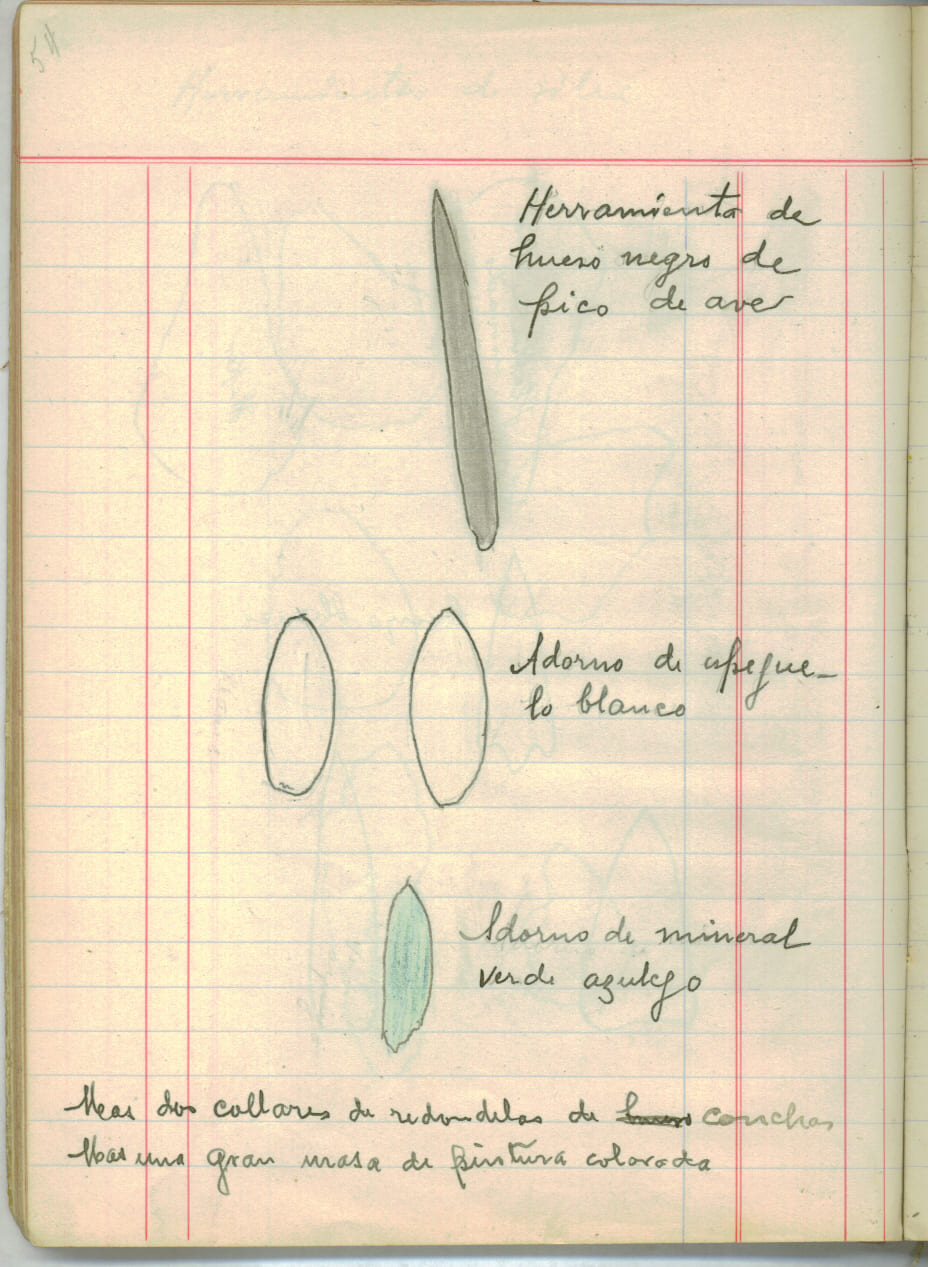 54
Herramienta de
hueso negro de
pico de ave
Adorno de espegue-
lo blanco
Adorno de mineral
verde azulejo
Mas dos collares de redondelas de hueso conchas
Mas una gran masa de pintura colorada